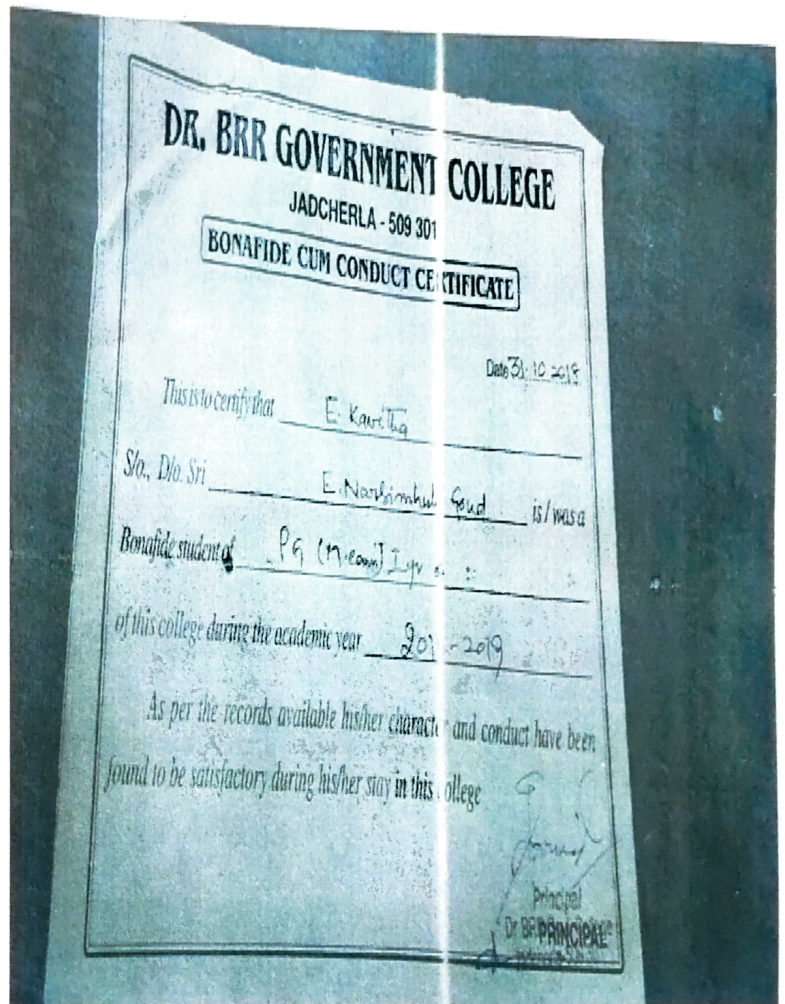 DR. BRR GOVERNMENT COLLEGE
JADCHERLA - 509 301
BONAFIDE CUM CONDUCT CERTIFICATE
Date 31.10.2018
This is to certify that E. Kavitha
S/o., D/o. Sri E. Narsimhulu Goud is / was a
Bonafide student of PG (M.com) I yr
of this college during the academic year -2019
As per the records available his/her character and conduct have been
found to be satisfactory during his/her stay in this college
Principal
PRINCIPAL